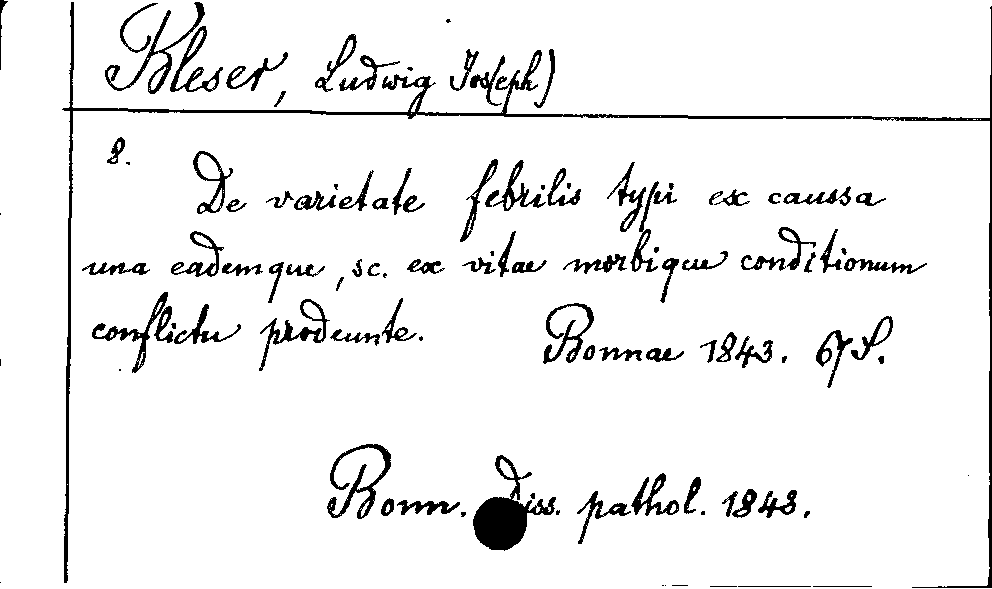 Bleser, Ludwig Jos(eph)
8.
De varietate febrilis typi ex caussa
una eademque, sc. ex vitae morbique conditionum
conflictu prodeunte.
Bonnae 1843. 67 S.
Bonn. Diss. pathol. 1843.